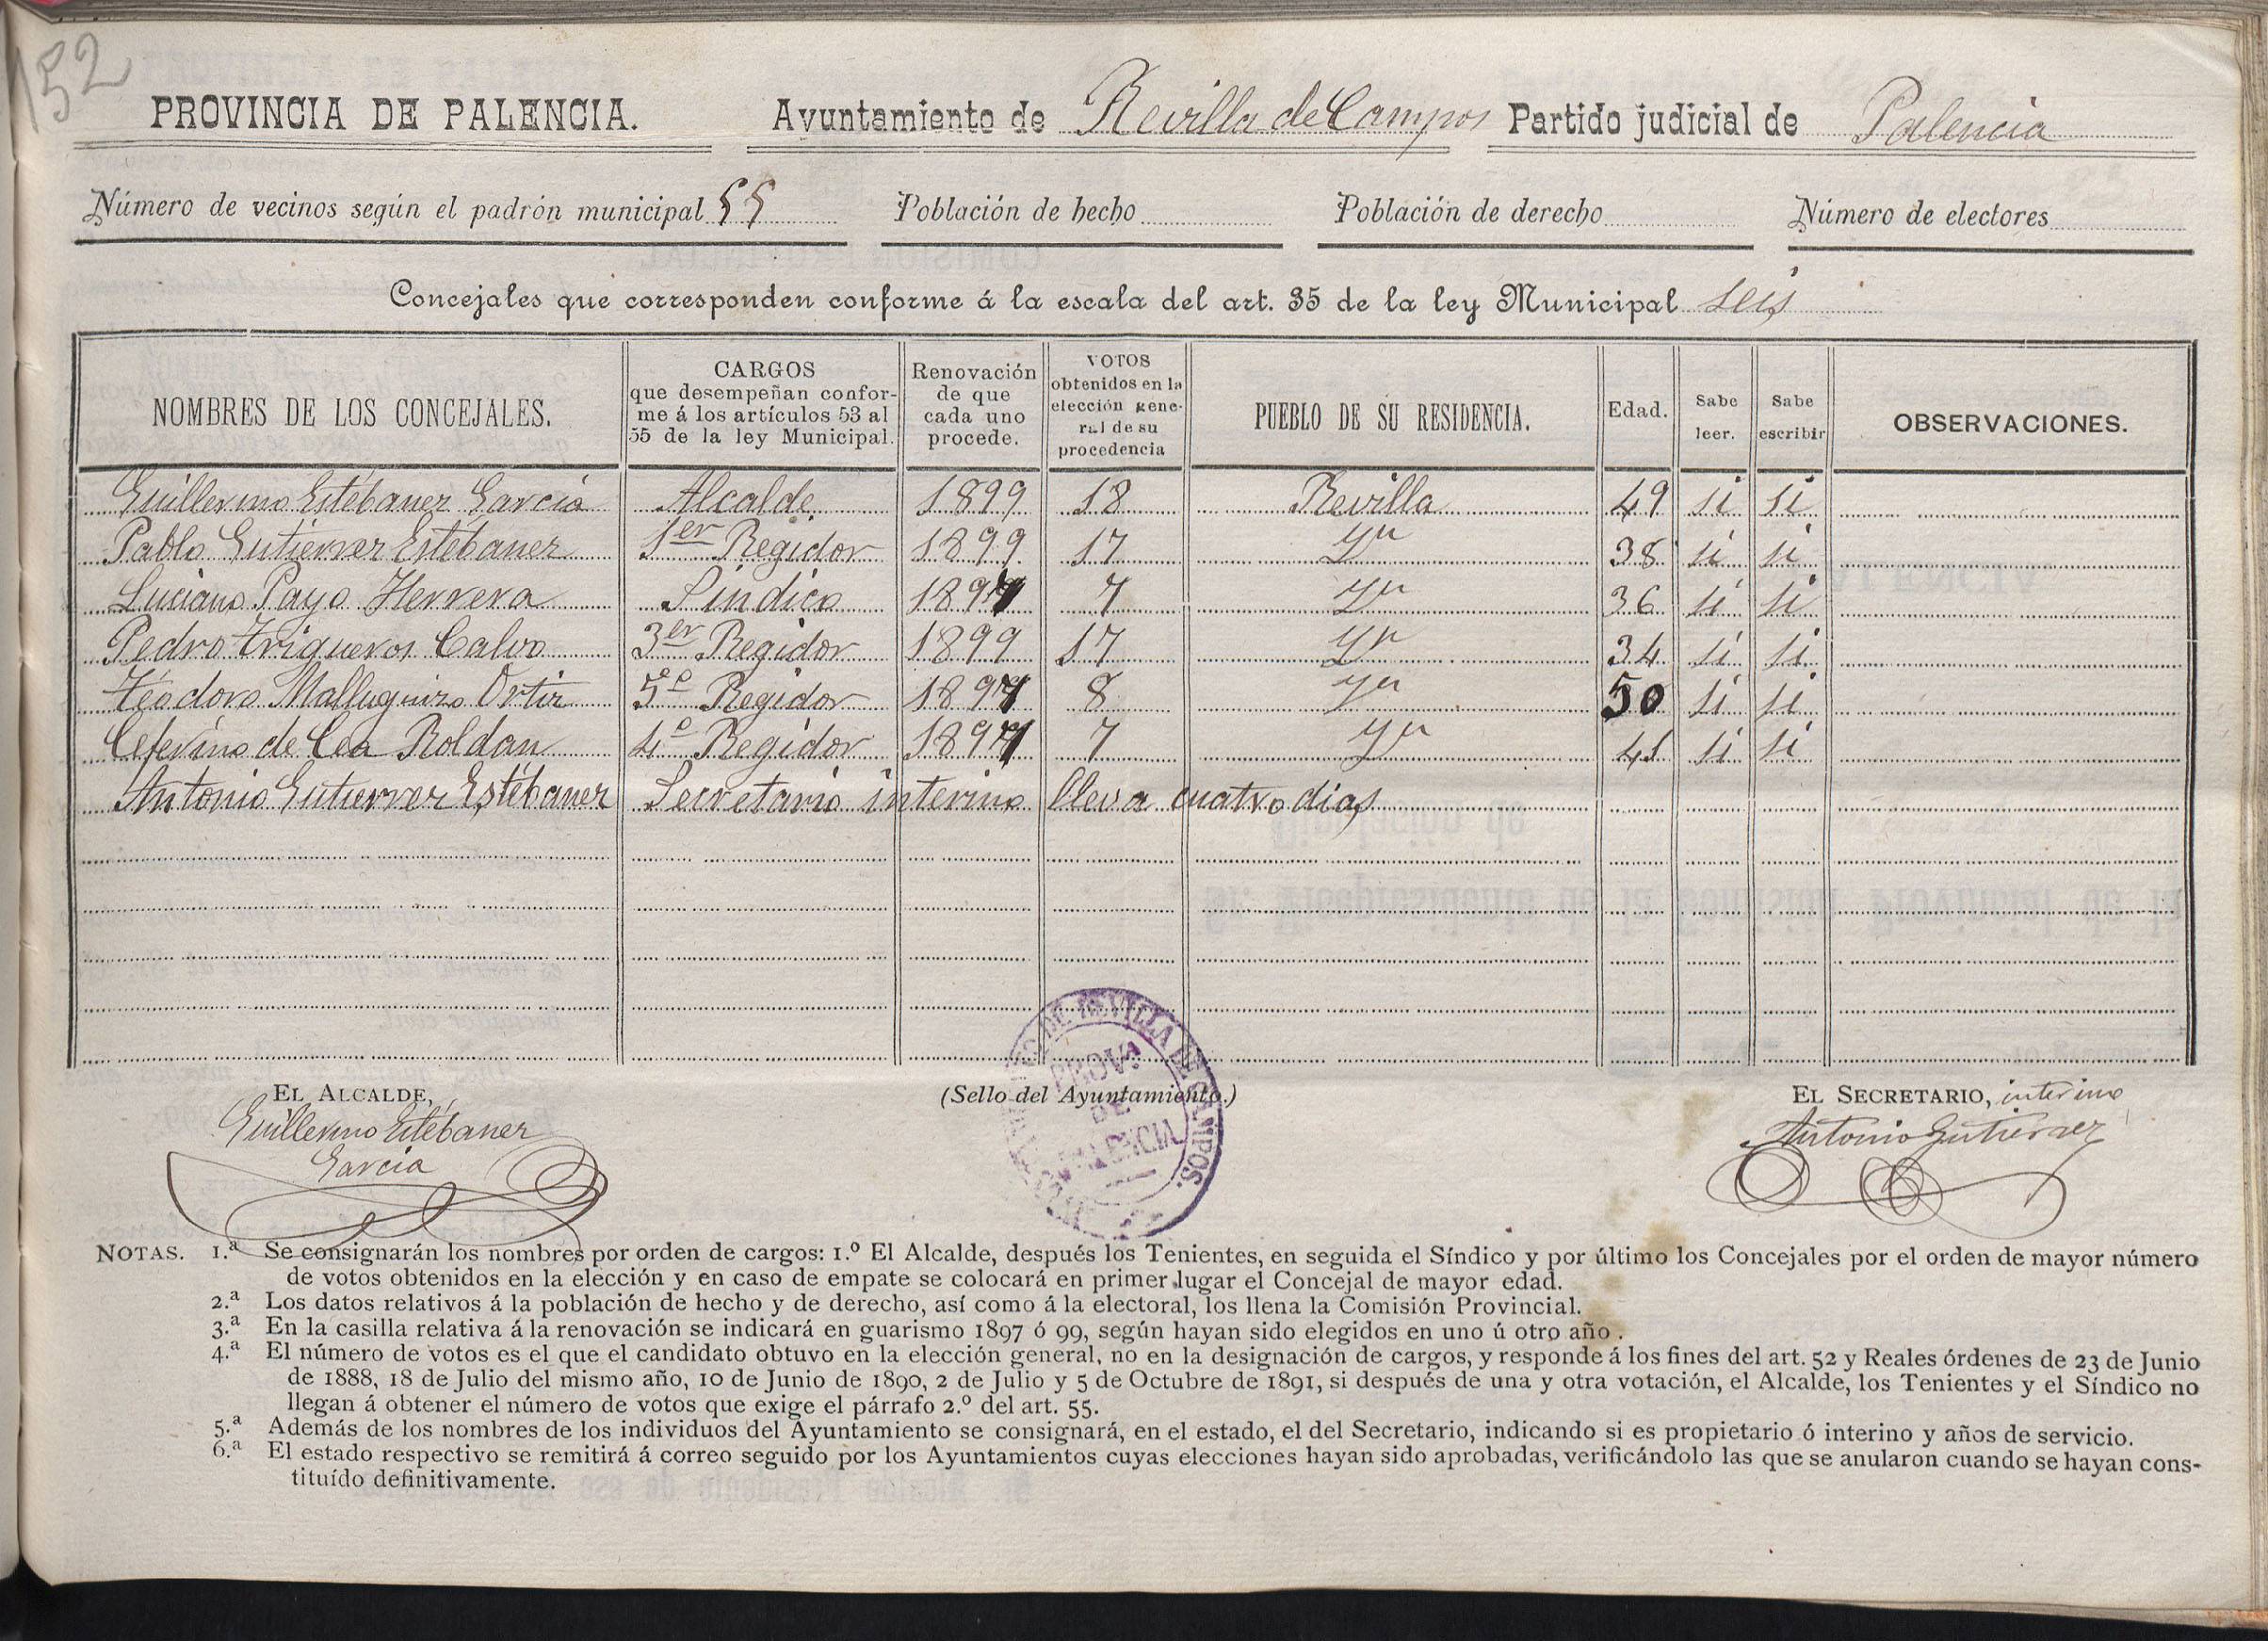 152
PROVINCIA DE PALENCIA. Ayuntamiento de Revilla de Campos Partido judicial de Palencia
Número de vecinos según el padrón municipal 55 Población de hecho Población de derecho Número de electores
Concejales que corresponden conforme á la escala del art. 35 de la ley Municipal seis
NOMBRES DE LOS CONCEJALES. CARGOS que desempeñan confor- me á los artículos 53 al 55 de la ley Municipal. Renovación de que cada uno procede. VOTOS obtenidos en la elección gene- ral de su procedencia PUEBLO DE SU RESIDENCIA. Edad. Sabe leer. Sabe escribir OBSERVACIONES.
Guillermo Estébanez García Alcalde 1899 18 Revilla 49 si si
Pablo Gutierrez Estébanez 1er Regidor 1899 17 Yn 38 si si
Luciano Payo Herrera Síndico 1897 7 Yn 36 si si
Pedro Trigueros Calvo 3er Regidor 1899 17 Yn 34 si si
Teodoro Malluguiza Ortiz 5º Regidor 1897 8 Yn 50 si si
Ceferino de Cea Roldan 4º Regidor 1897 7 Yn 41 si si
Antonio Gutierrez Estébanez Secretario interino lleva cuatro dias
EL ALCALDE, (Sello del Ayuntamiento.) EL SECRETARIO, interino
Guillermo Estébanez
García
Antonio Gutierrez
DE REVILLA DE CAMPOS.
PROVª
DE
PALENCIA
NOTAS. 1.ª Se consignarán los nombres por orden de cargos: 1.º El Alcalde, después los Tenientes, en seguida el Síndico y por último los Concejales por el orden de mayor número
de votos obtenidos en la elección y en caso de empate se colocará en primer lugar el Concejal de mayor edad.
2.ª Los datos relativos á la población de hecho y de derecho, así como á la electoral, los llena la Comisión Provincial.
3.ª En la casilla relativa á la renovación se indicará en guarismo 1897 ó 99, según hayan sido elegidos en uno ú otro año.
4.ª El número de votos es el que el candidato obtuvo en la elección general, no en la designación de cargos, y responde á los fines del art. 52 y Reales órdenes de 23 de Junio
de 1888, 18 de Julio del mismo año, 10 de Junio de 1890, 2 de Julio y 5 de Octubre de 1891, si después de una y otra votación, el Alcalde, los Tenientes y el Síndico no
llegan á obtener el número de votos que exige el párrafo 2.º del art. 55.
5.ª Además de los nombres de los individuos del Ayuntamiento se consignará, en el estado, el del Secretario, indicando si es propietario ó interino y años de servicio.
6.ª El estado respectivo se remitirá á correo seguido por los Ayuntamientos cuyas elecciones hayan sido aprobadas, verificándolo las que se anularon cuando se hayan cons-
tituído definitivamente.